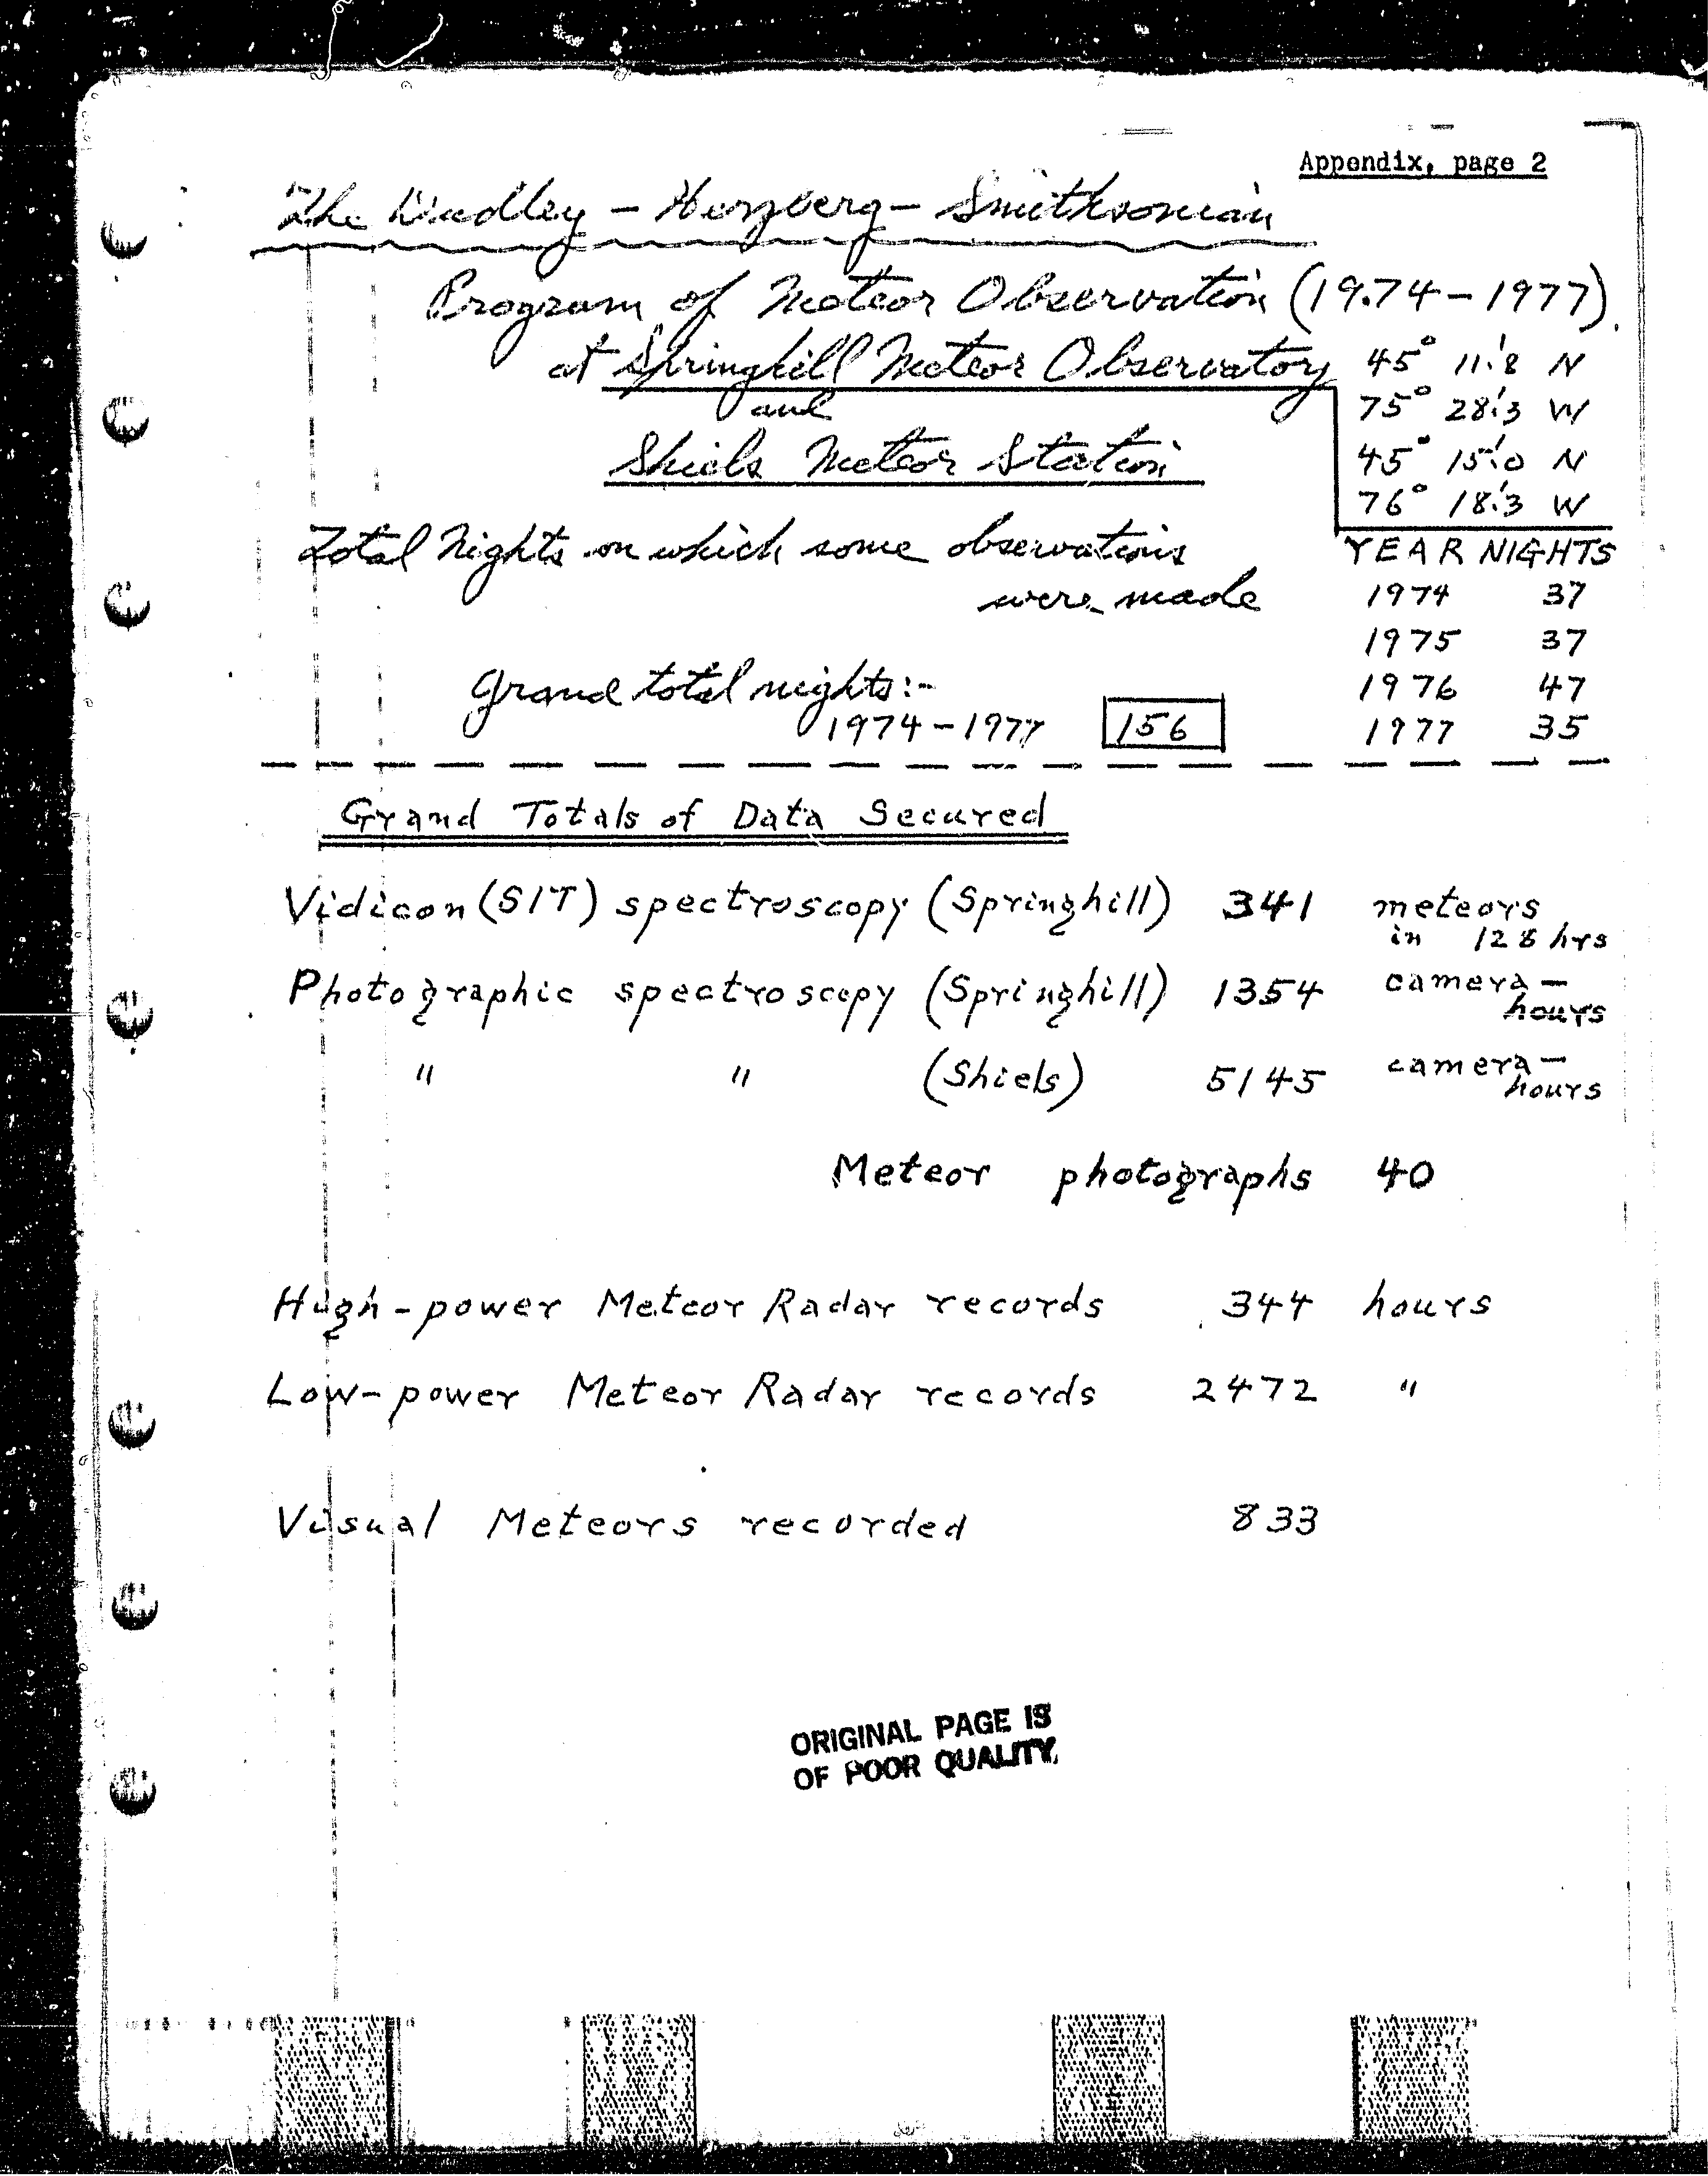 Appendix, page 2
The Dudley - Herzberg - Smithsonian
Program of Meteor Observation (1974-1977)
at Springhill Meteor Observatory 45° 11.'8 N
and 75° 28.'3 W
Shiels Meteor Station 45° 15.'0 N
76° 18.'3 W
Total Nights on which some observations YEAR NIGHTS
were made 1974 37
1975 37
Grand total nights:- 1976 47
1974-1977 156 1977 35
Grand Totals of Data Secured
Vidicon (SIT) spectroscopy (Springhill) 341 meteors
in 128 hrs
Photographic spectroscopy (Springhill) 1354 camera-
hours
" " (Shiels) 5145 camera-
hours
Meteor photographs 40
High-power Meteor Radar records 344 hours
Low-power Meteor Radar records 2472 "
Visual Meteors recorded 833
ORIGINAL PAGE IS
OF POOR QUALITY